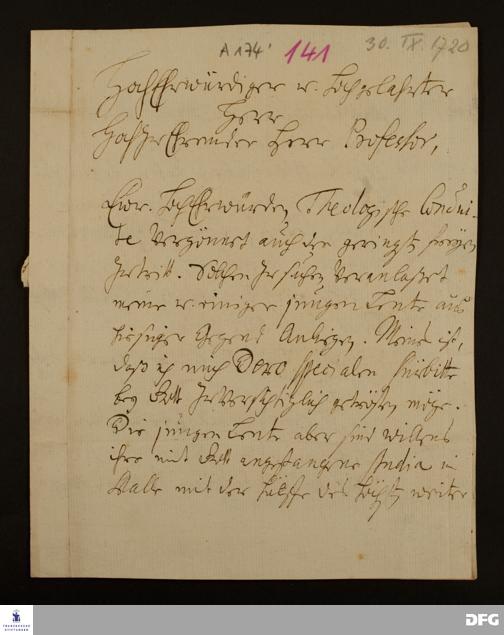 A 174 141 30. IX. 1720
HochEhrwürdiger u. Hochgelahrter
Herr
HochzuEhrender Herr Professor,
Ew. HochEhrwürden Theologische Comi-
te vergönnet auch den geringsten freyen
Zutritt. Solchen zu suchen veranlaßet
meine u. einiger jungen Leute aus
hiesiger Gegend Anliegen. Meins ist,
daß ich nach Dero specialen Fürbitte
bey Gott zuversichtlich getrösten möge.
Die jungen Leute aber sind willens
ihre mit Gott angefangene Studia in
Halle mit der Hülffe des Höchsten weiter
FRANCKESCHE STIFTUNGEN
DFG